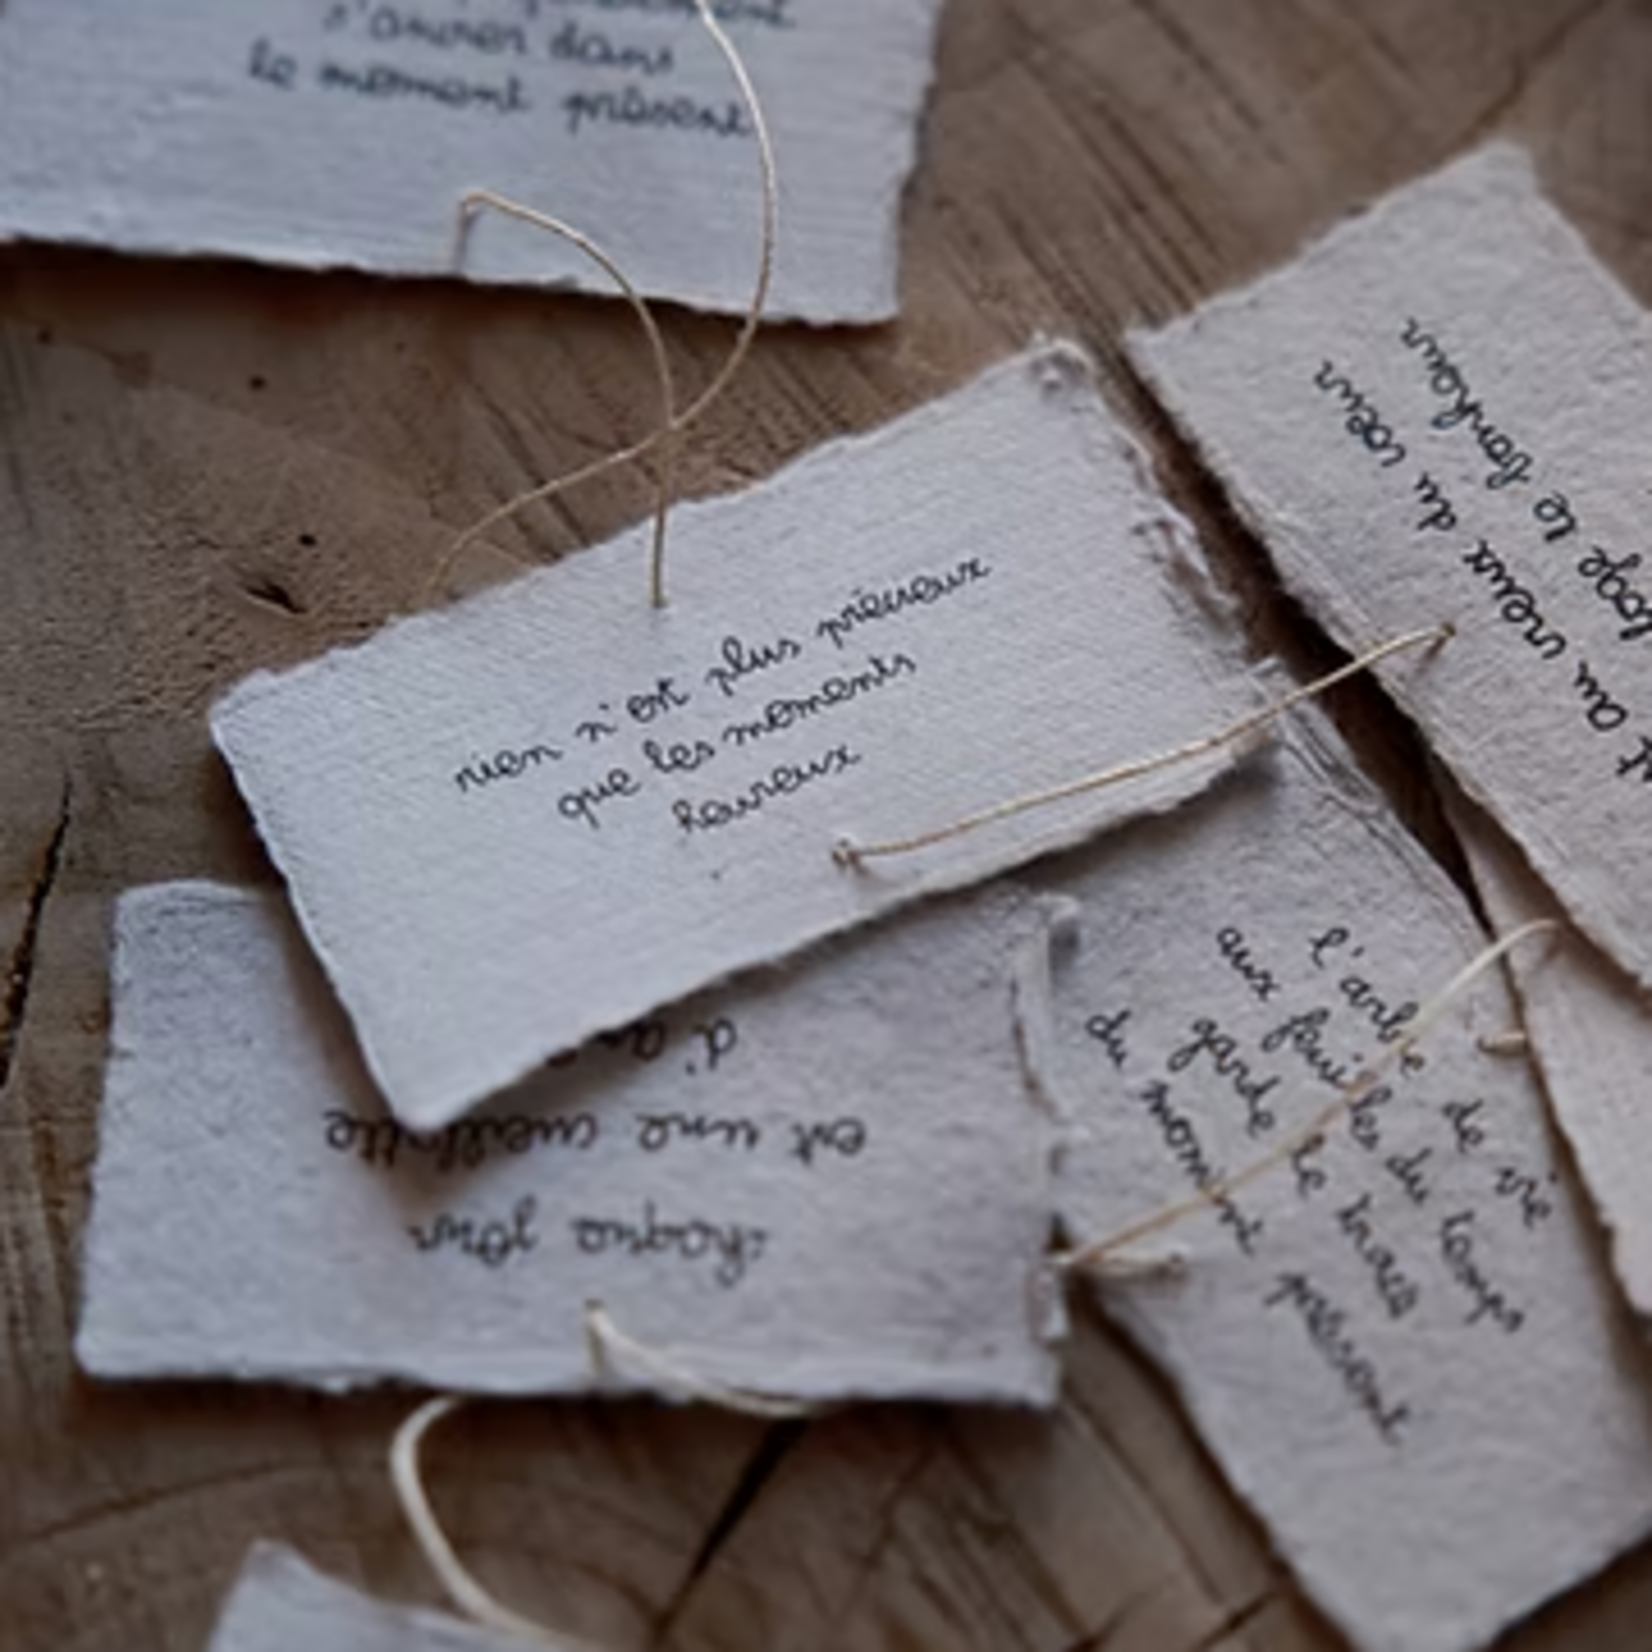 s'ancrer dans
le moment présent
rien n'est plus précieux
que les moments
heureux
au creux du cœur
loge le bonheur
l'arbre de vie
aux feuilles du temps
garde le trace
du moment présent
chaque jour
est une cueillette